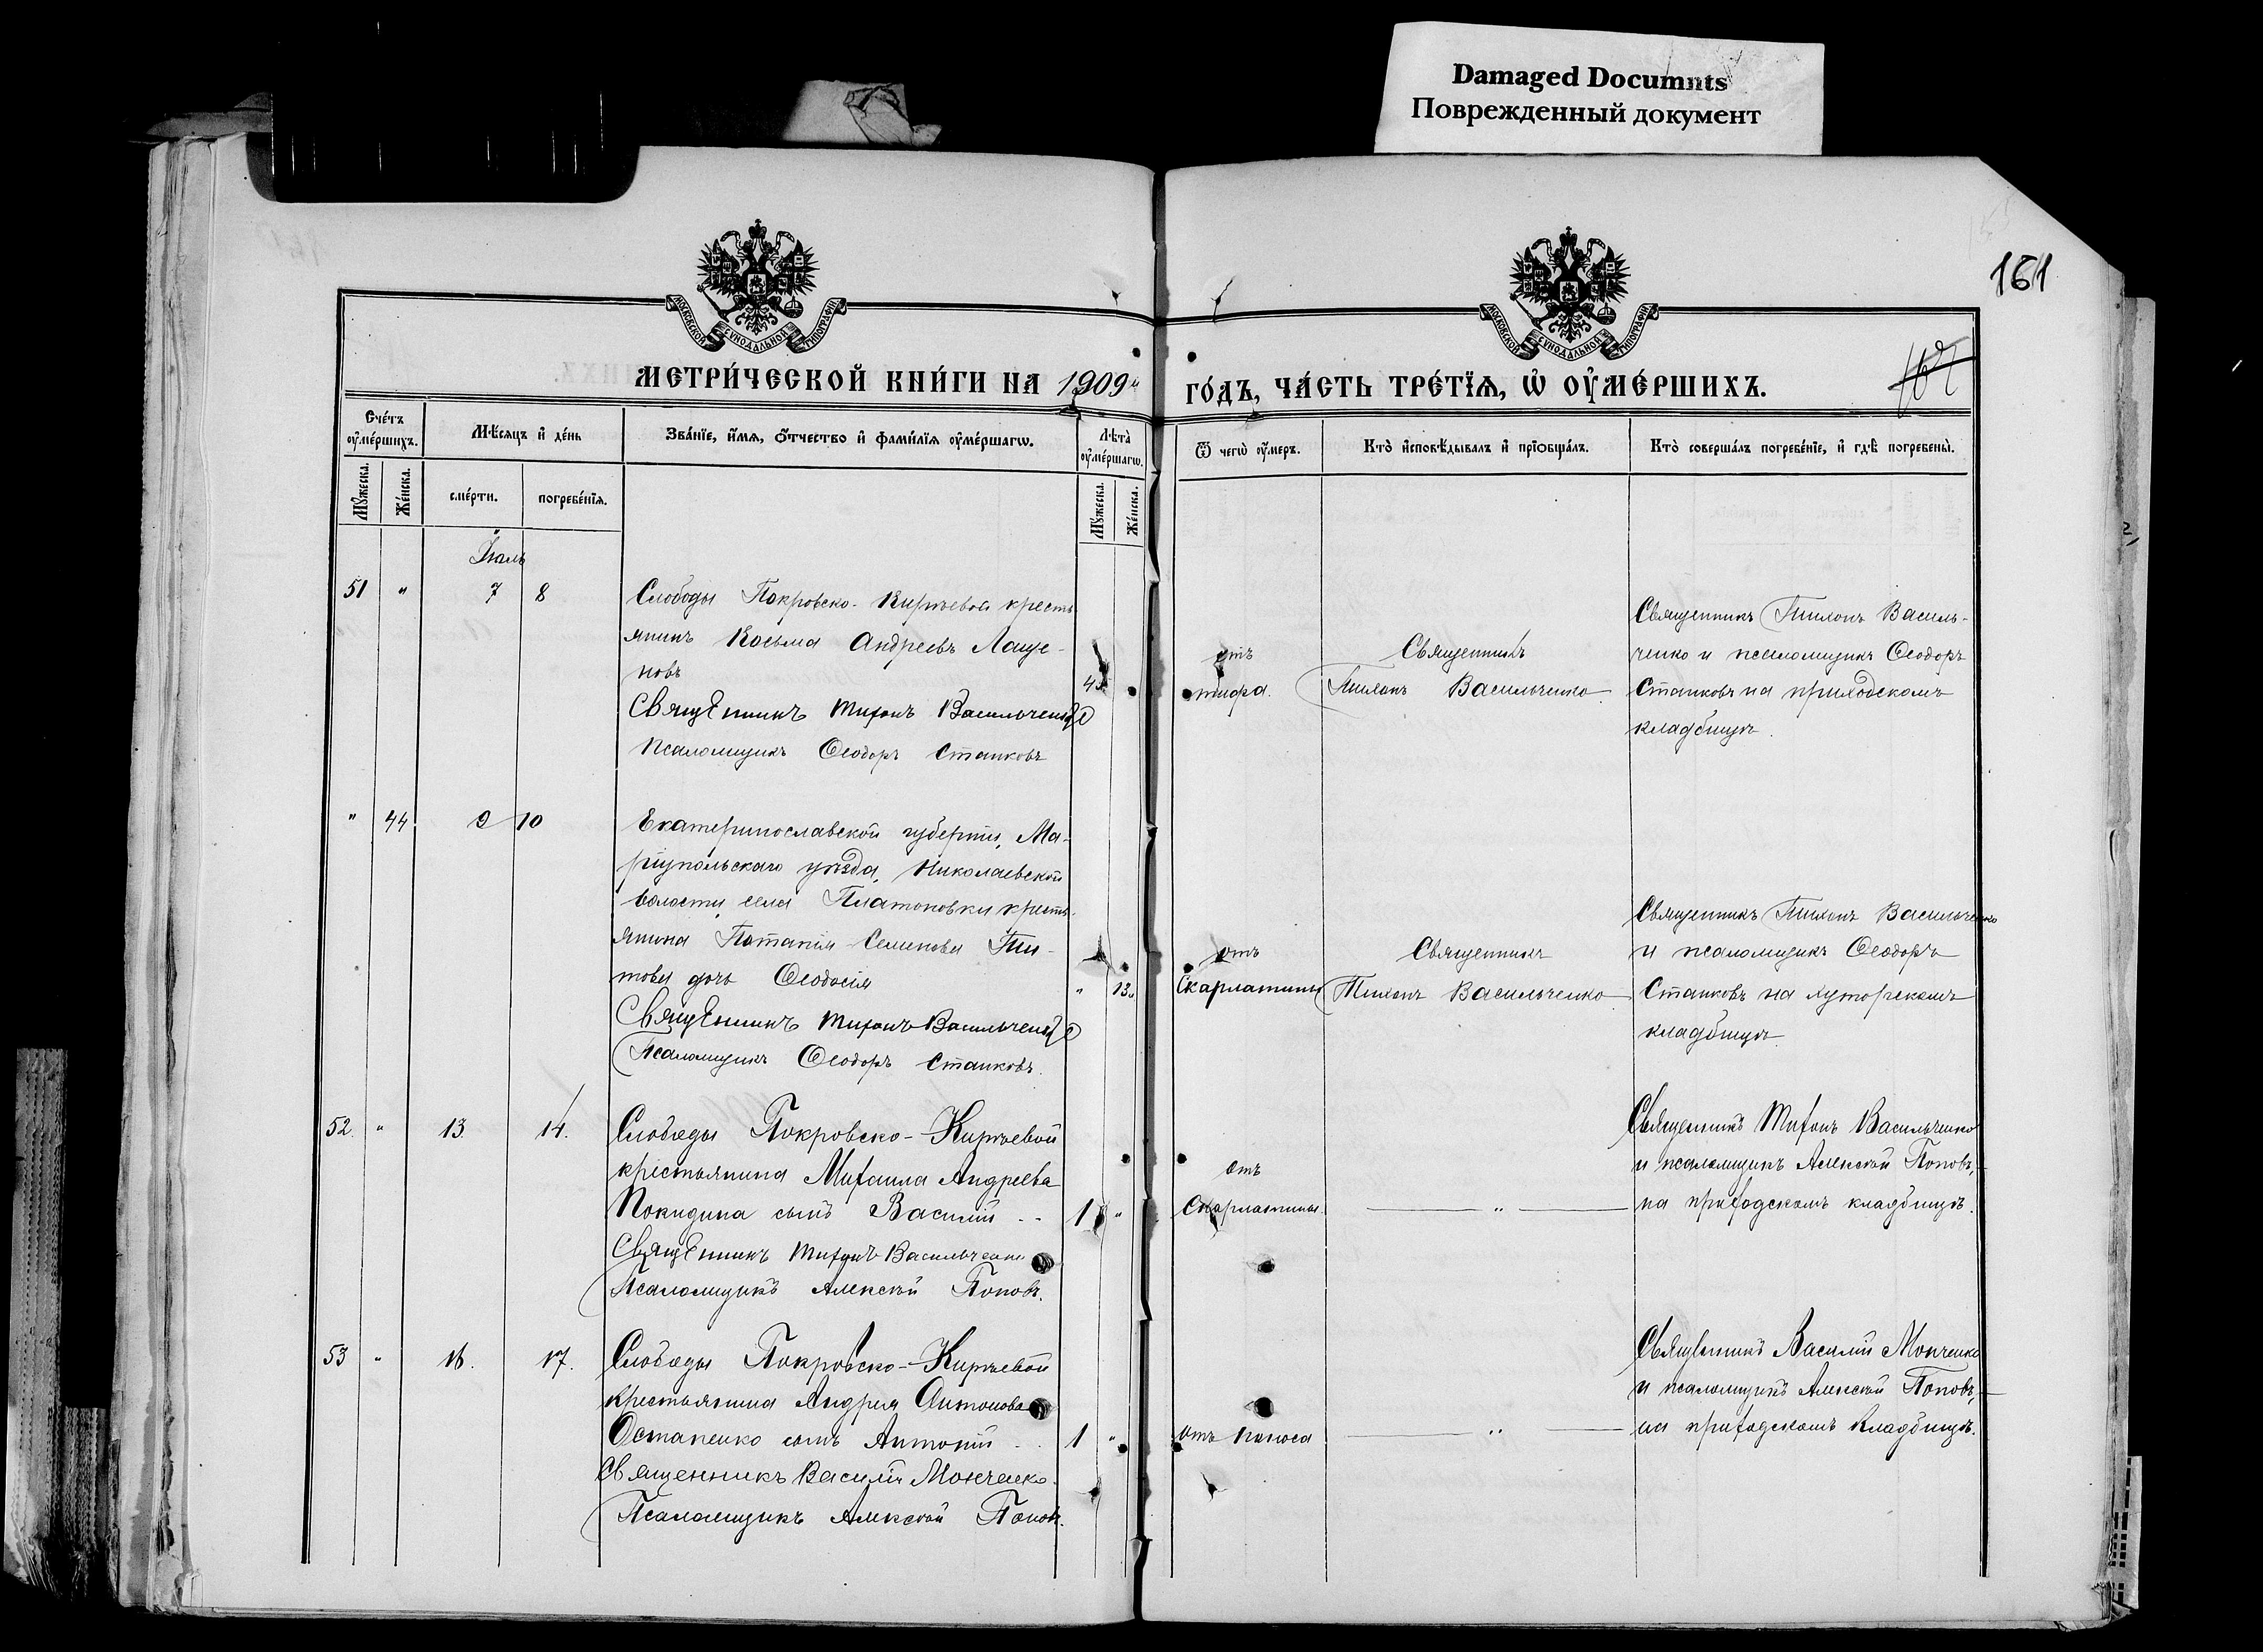 Damaged Documnts
Поврежденный документ
161
МОСКОВСКОЙ СѴНОДАЛЬНОЙ ТИПОГРАФІИ
МОСКОВСКОЙ СѴНОДАЛЬНОЙ ТИПОГРАФІИ
МЕТРИ́ЧЕСКОЙ КНИ́ГИ НА 1909й
ГО́ДЪ, ЧА́СТЬ ТРЕ́ТЇѦ, Ѡ҆ ОУ҆МЕ́РШИХЪ.
Сче́тъ оу҆ме́ршихъ.
Мѣ́сѧцъ и҆ де́нь
Зва́нїе, и҆́мѧ, ѻ҆́тчество и҆ фами́лїѧ оу҆ме́ршагѡ.
Лѣ́та оу҆ме́ршагѡ.
Ѿ чегѡ̀ оу҆́меръ.
Кто̀ и҆сповѣ́дывалъ и҆ прїѻбща́лъ.
Кто̀ соверша́лъ погребе́нїе, и҆ гдѣ̀ погребены̀.
Мꙋ́жеска.
Же́нска.
сме́рти.
погребе́нїѧ.
Мꙋ́жеска.
Же́нска.
Іюль
51 " 7 8
Слободы Покровско-Кирѣевой кресть
янинъ Косьма Андреевъ Лаще-
новъ
Священникъ Тихонъ Васильченко
Псаломщикъ Ѳеодоръ Станковъ
отъ
тифа.
Священникъ
Тихонъ Васильченко
Священникъ Тихонъ Василь-
ченко и псаломщикъ Ѳеодоръ
Станковъ на приходскомъ
кладбищѣ.
" 44 9 10
Екатеринославской губерніи, Ма-
ріупольскаго уѣзда, Николаевской
волости, села Платоновки кресть-
янина Потапія Семенова Ти-
това дочь Ѳеодосія
" 13
Священникъ Тихонъ Васильченко
Псаломщикъ Ѳеодоръ Станковъ.
отъ
Скарлатины
Священникъ
Тихонъ Васильченко
Священникъ Тихонъ Васильченко
и псаломщикъ Ѳеодоръ
Станковъ на хуторскомъ
кладбищѣ
52. " 13. 14.
Слободы Покровско-Кирѣевой
крестьянина Михаила Андреева
Покидина сынъ Василій
1 "
Священникъ Тихонъ Васильченко
Псаломщикъ Алексѣй Поповъ.
отъ
Скарлатины.
"
Священникъ Тихонъ Васильченко
и псаломщикъ Алексѣй Поповъ,
на приходскомъ кладбищѣ.
53 " 16. 17.
Слободы Покровско-Кирѣевой
крестьянина Андрея Антонова
Остапенко сынъ Антоній
1 "
Священникъ Василій Мокченко.
Псаломщикъ Алексѣй Поповъ.
отъ поноса
"
Священникъ Василій Мокченко
и псаломщикъ Алексѣй Поповъ,
на приходскомъ кладбищѣ.